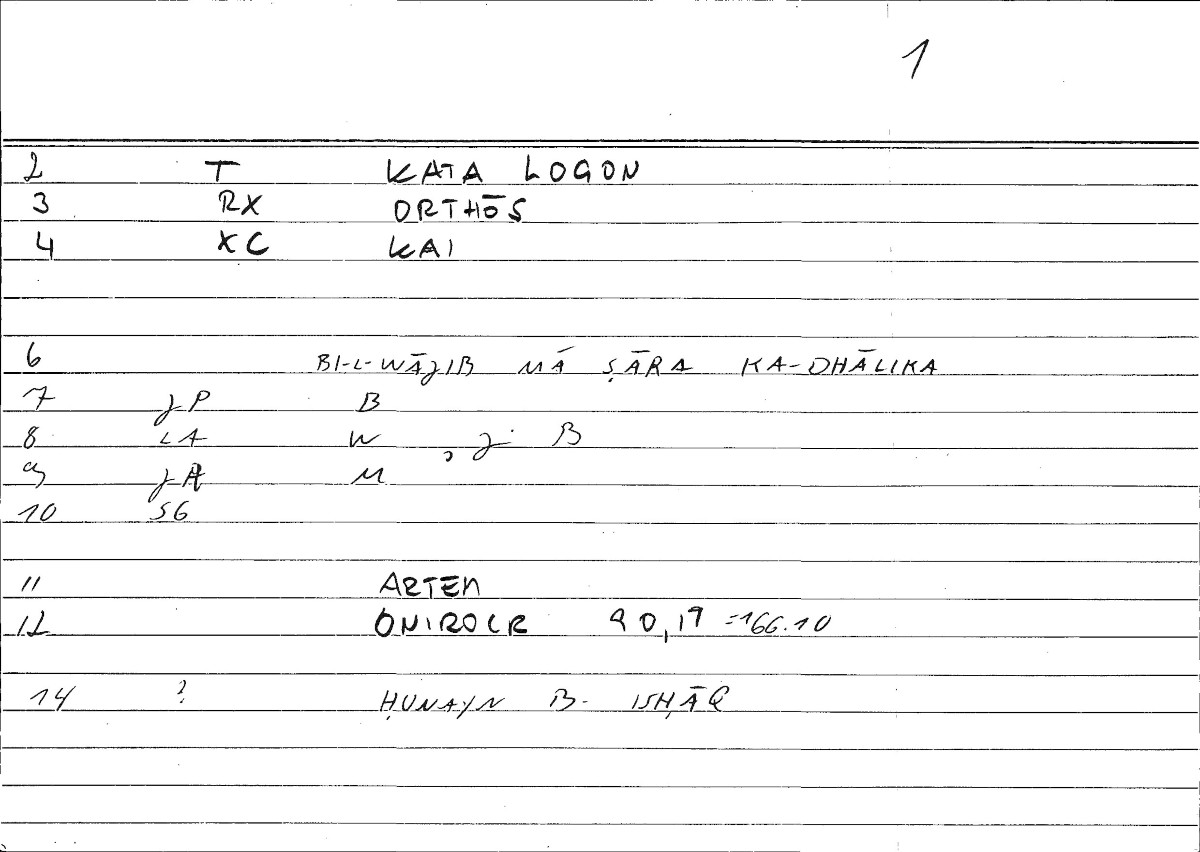 1
2 T KATA LOGON
3 RX ORTHŌS
4 XC KAI
6 BI-L-WĀJIB MĀ ṢĀRA KA-DHĀLIKA
7 JP B
8 LA W , J B
9 JA M
10 SG
11 ARTEM
12 ONIROCR 90,19 =166.10
14 ? ḤUNAYN B. ISḤĀQ